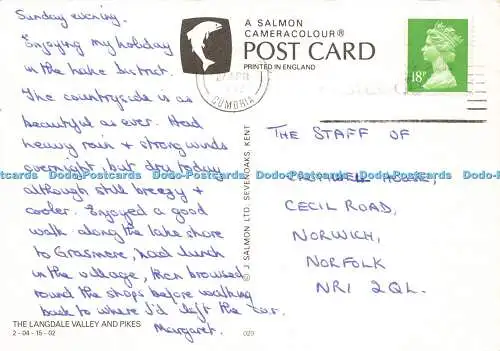 Sunday evening.
Enjoying my holiday
in the Lake District.
The countryside is as
beautiful as ever. Had
heavy rain & strong winds
overnight, but dry today
although still breezy &
cooler. Enjoyed a good
walk along the lake shore
to Grasmere, had lunch
in the village, then browsed
round the shops before walking
back to where I'd left the car.
Margaret.
THE LANGDALE VALLEY AND PIKES
2-04-15-02
029
A SALMON
CAMERACOLOUR®
POST CARD
PRINTED IN ENGLAND
© J SALMON LTD. SEVENOAKS, KENT
CUMBRIA
18P
THE STAFF OF
HOUSE,
CECIL ROAD,
NORWICH,
NORFOLK
NR1 2QL.
Dodo-Postcards Dodo-Postcards Dodo-Postcards Dodo-Postcards